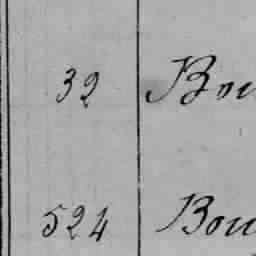 32 Bou
524 Bou